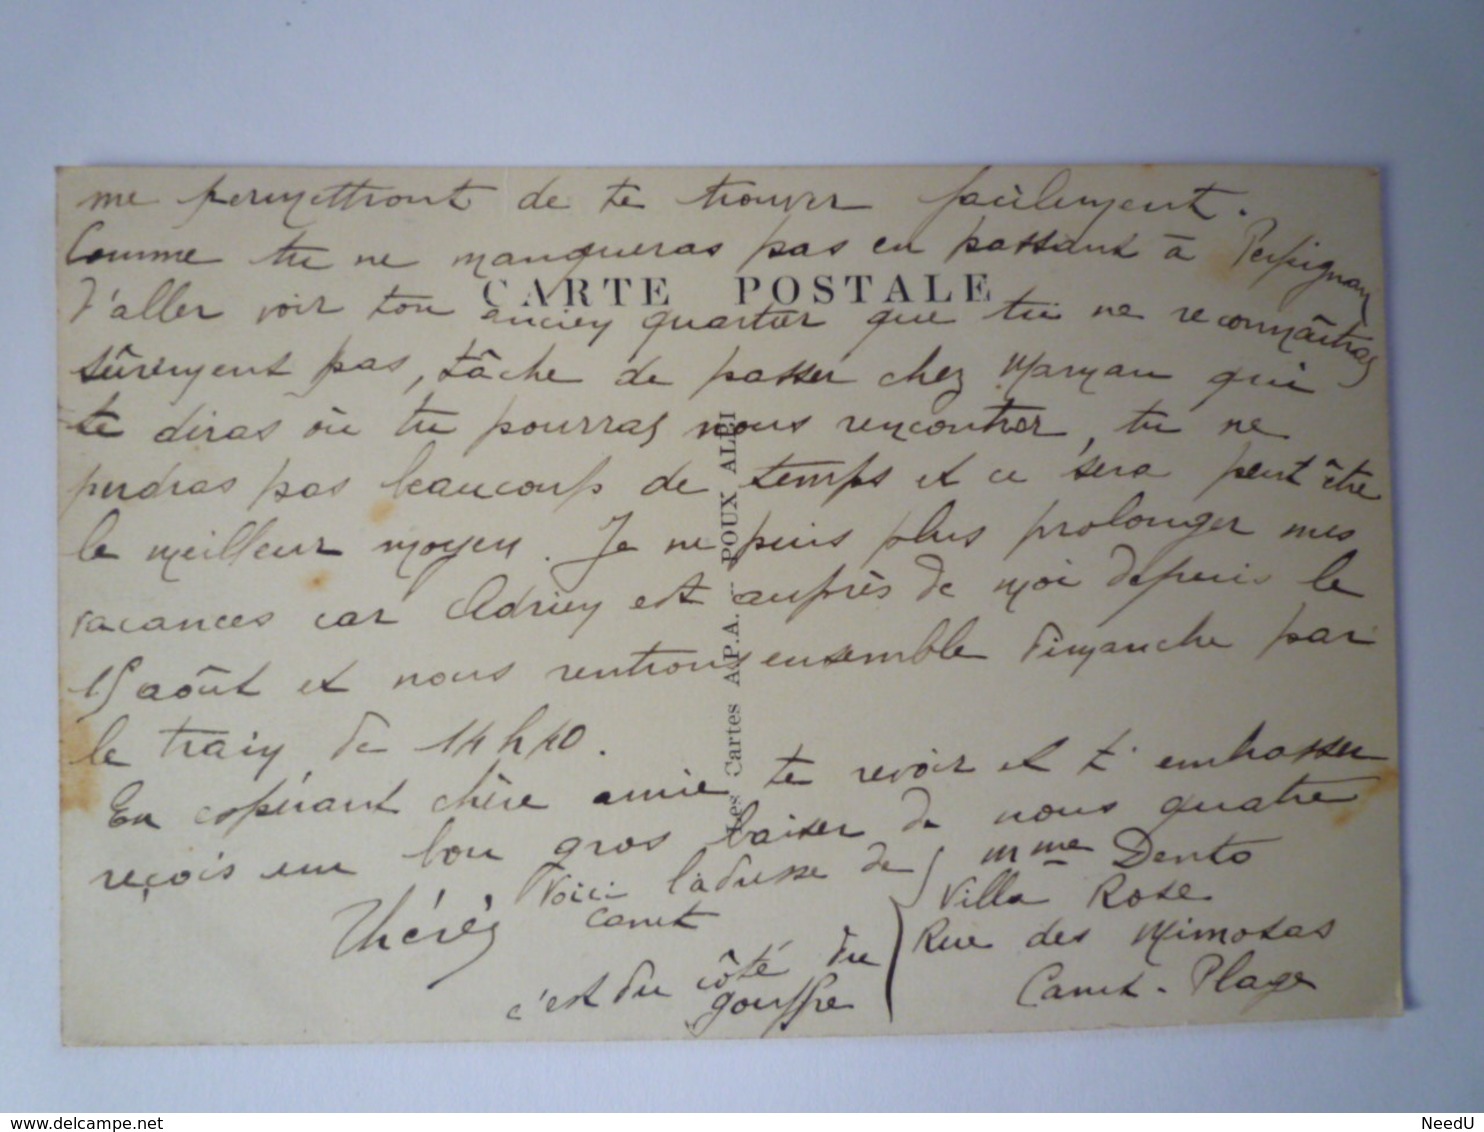 me permettront de te trouver facilement.
Comme tu ne manqueras pas en passant à Perpignan
CARTE POSTALE
d'aller voir ton ancien quartier que tu ne reconnaîtras
sûrement pas, tâche de passer chez Maryan qui
te diras où tu pourras nous rencontrer, tu ne
perdras pas beaucoup de temps et ce sera peut être
le meilleur moyen. Je ne puis plus prolonger mes
vacances car Adrien est auprès de moi depuis le
15 août et nous rentrons ensemble dimanche par
le train de 14h40.
En espérant chère amie te revoir et t'embrasser
reçois un bon gros baiser de nous quatre
Thérès
Voici l'adresse de
Canet
c'est du côté du
gouffre
Mme Dento
Villa Rose
Rue des Mimosas
Canet-Plage
Les Cartes A.P.A. - POUX ALBI
www.delcampe.net
NeedU